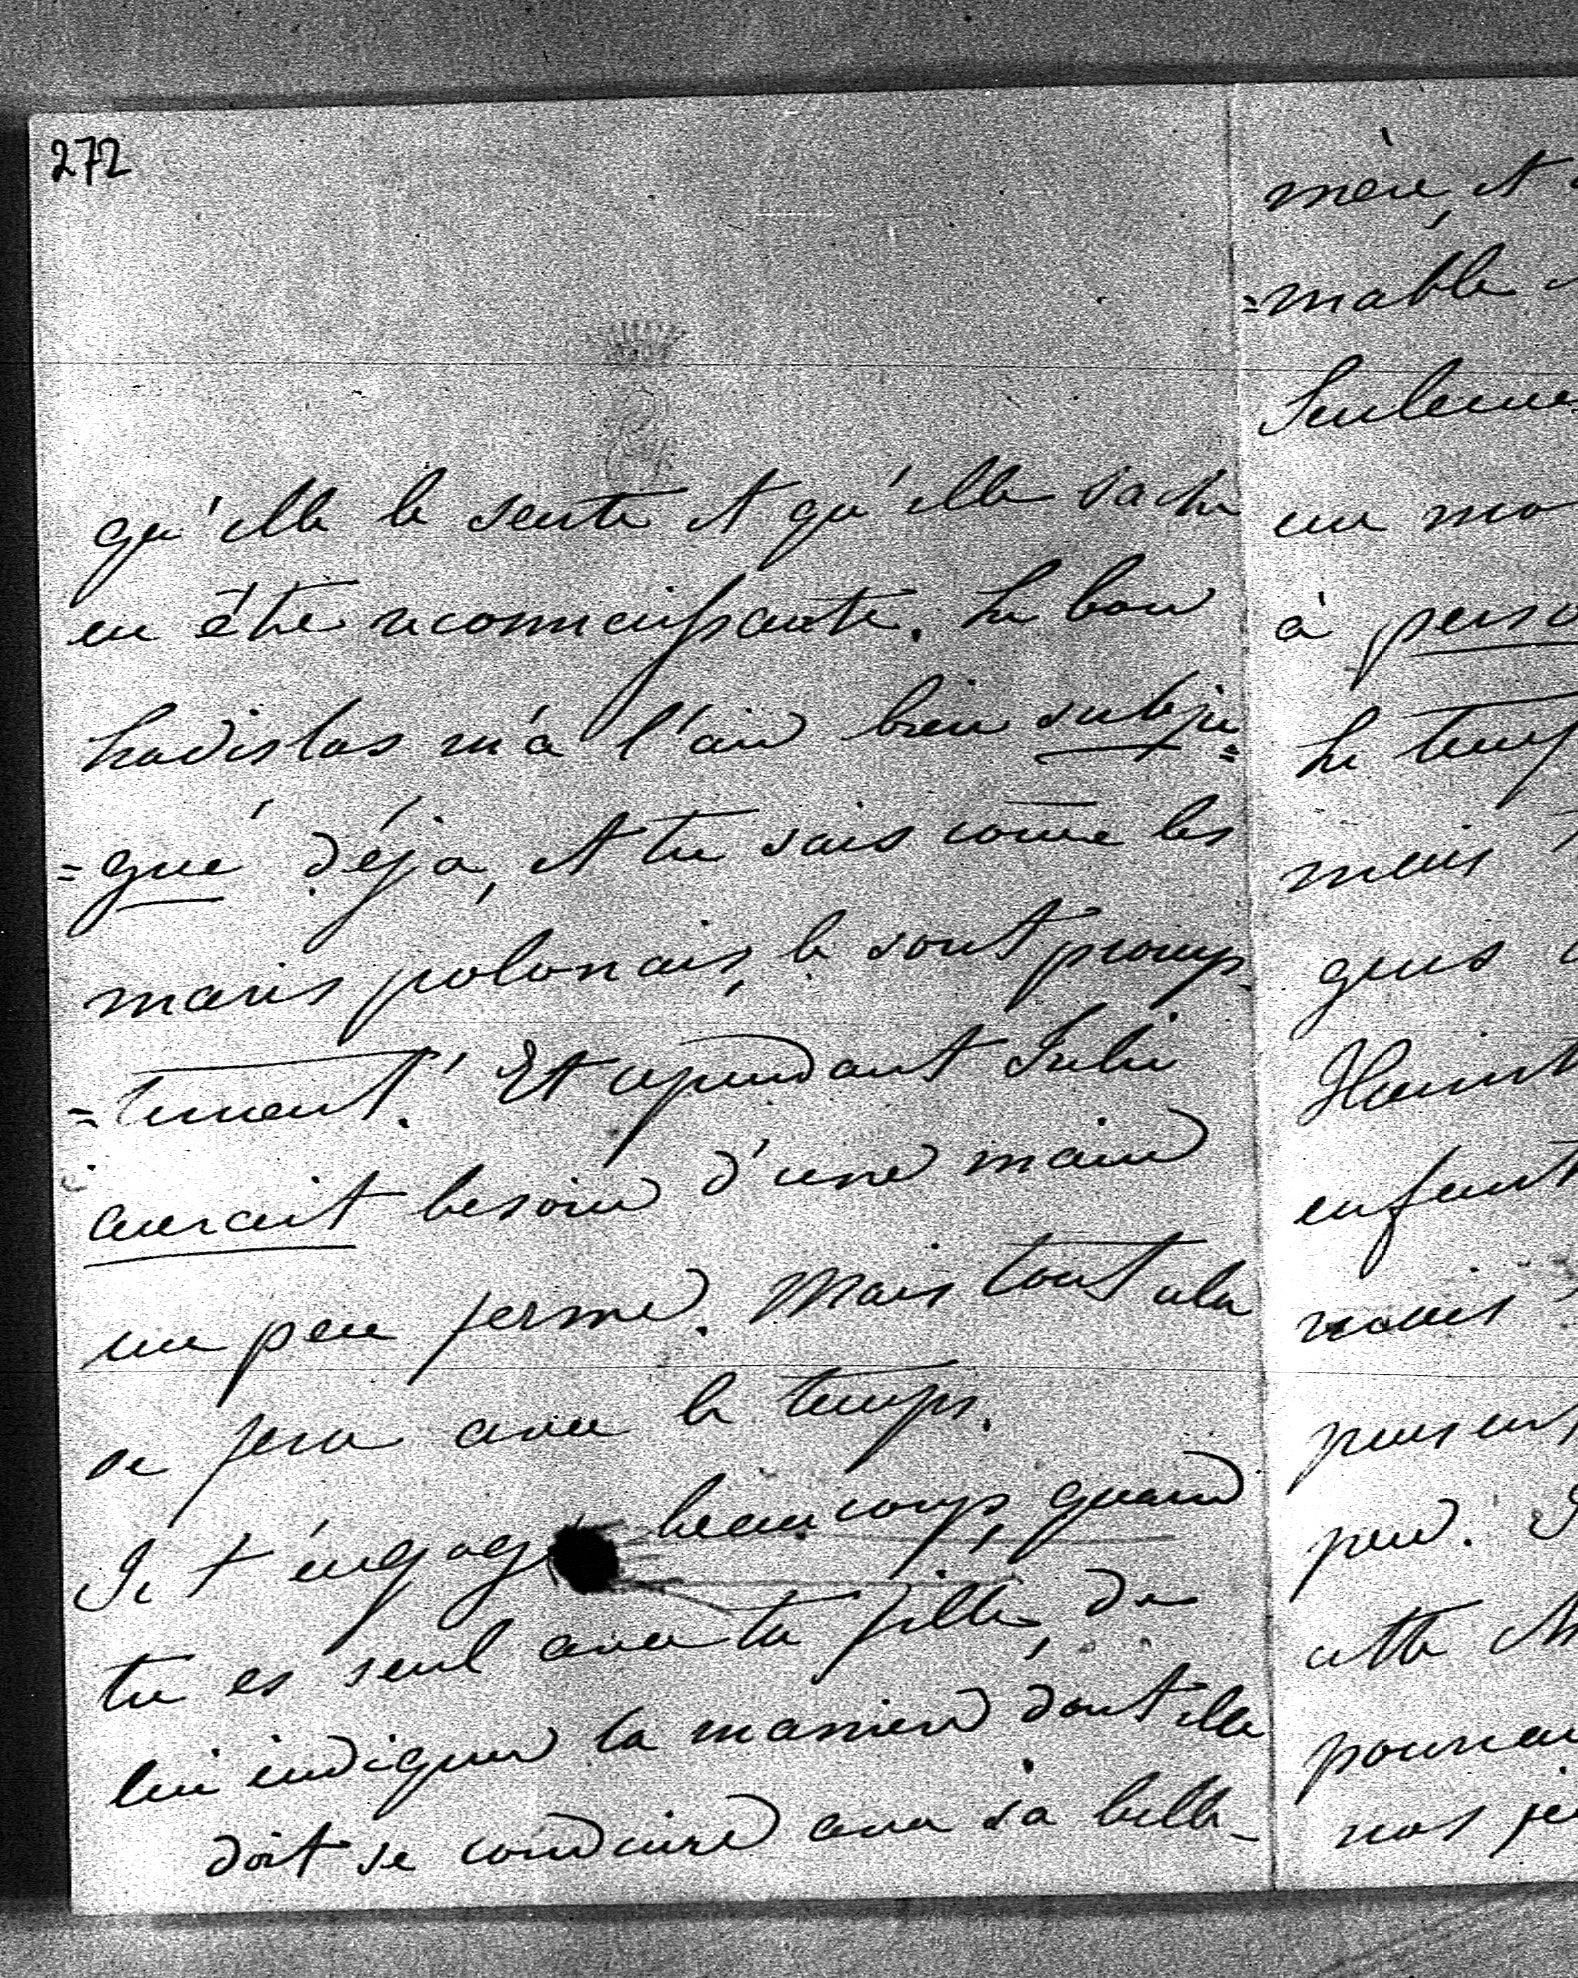 272
qu'elle le sente et qu'elle sache
en être reconnaissante. Le bon
Ladislas m'a l'air bien subju=
=gué déjà, et tu sais come les
maris polonais, le sont promp=
=tement! Et cependant Julie
aurait besoin d'une main
un peu ferme. Mais tout cela
se fera avec le temps.
Je t'engage beaucoup, quand
tu es seul avec ta fille, de
lui indiquer la manière dont elle
doit se conduire avec sa belle-
mère, et
=mable
Seuleme
un mo
à perso
Le temp
mais
gens
enfant
mais
peu.
cette
pourrai
nos je